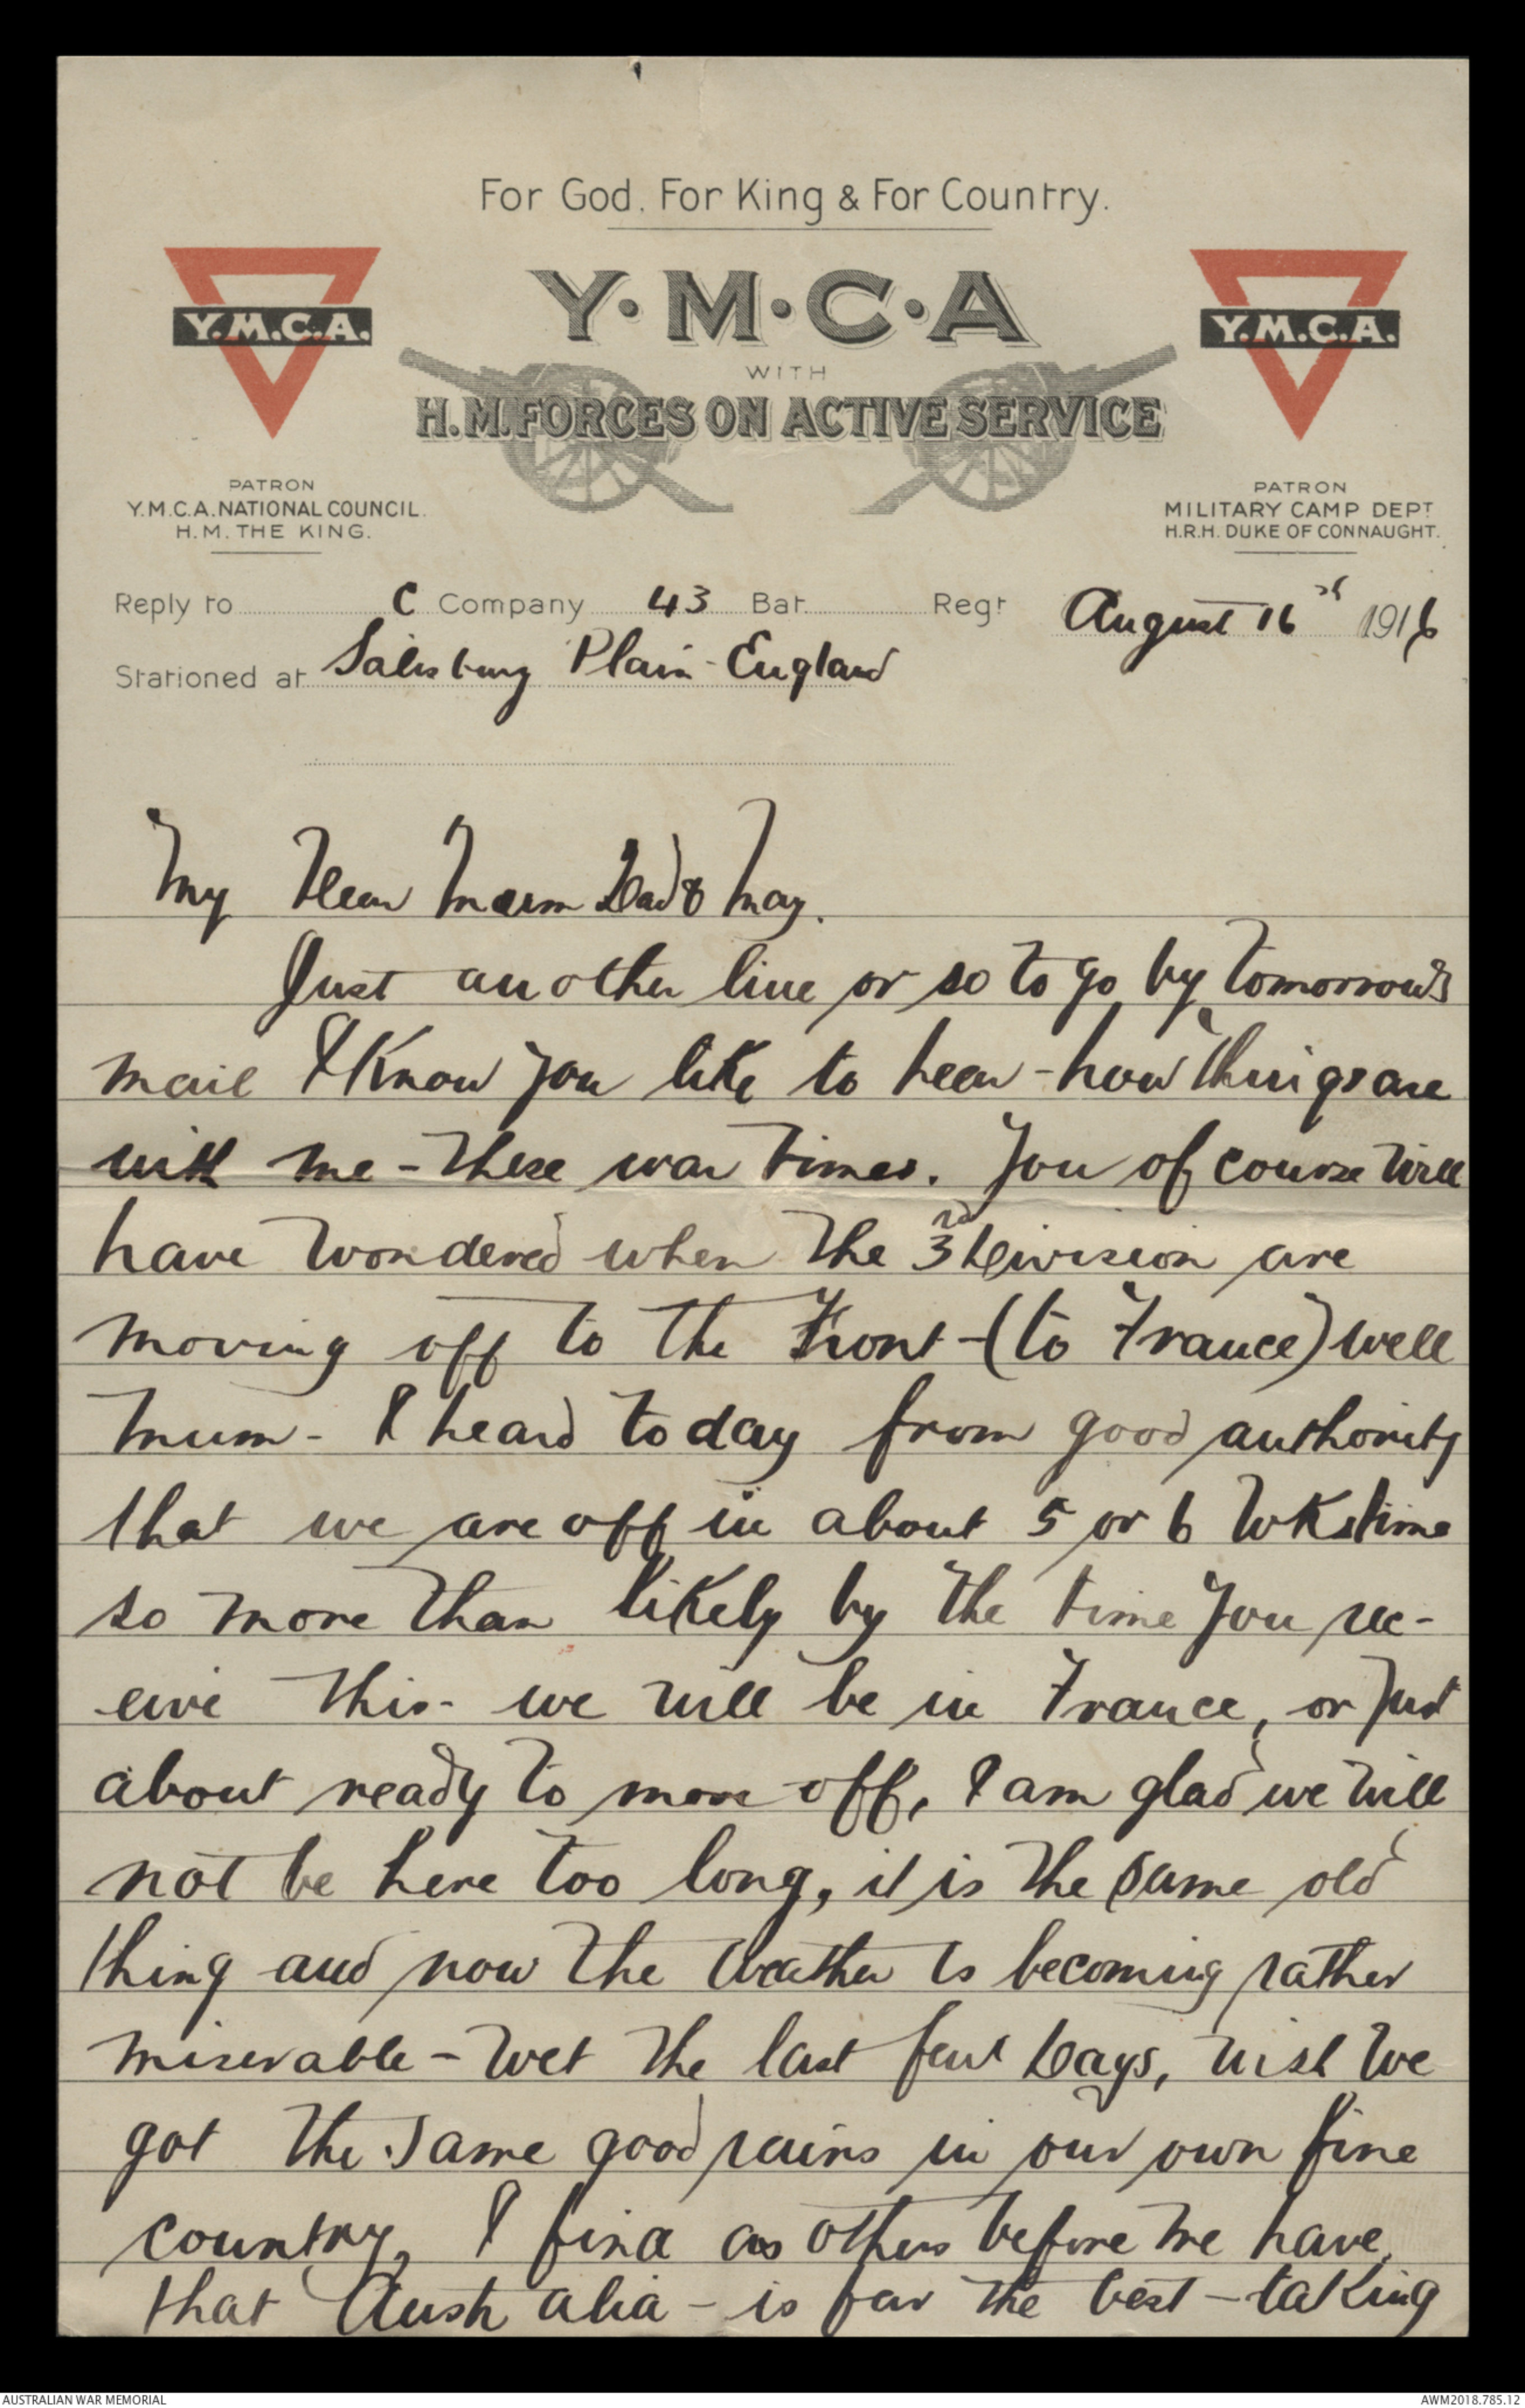 For God. For King & For Country.
Y.M.C.A.
Y·M·C·A
Y.M.C.A.
WITH
H.M. FORCES ON ACTIVE SERVICE
PATRON
Y.M.C.A. NATIONAL COUNCIL.
H.M. THE KING.
PATRON
MILITARY CAMP DEPT
H.R.H. DUKE OF CONNAUGHT.
Reply to C Company 43 Bat. Regt August 16 1916
Stationed at Salisbury Plain - England
My Dear Mum Dad & May.
Just another line or so to go by tomorrows
mail I know you like to hear - how things are
with me - these war times. You of course will
have wondered when the 3rd Division are
moving off to the Front - (to France) well
mum - I heard today from good authority
that we are off in about 5 or 6 wks time
so more than likely by the time you rec-
eive this - we will be in France, or just
about ready to move off, I am glad we will
not be here too long, it is the same old
thing and now the weather is becoming rather
miserable - wet the last few days, wish we
got the same good rains in our own fine
country, I find as others before me have,
that Australia - is far the best - taking
AUSTRALIAN WAR MEMORIAL
AWM2018.785.12